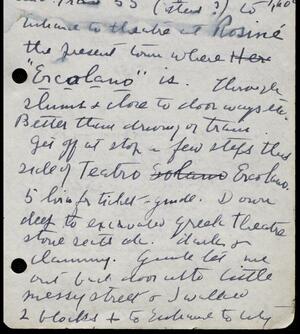 55 (steps?) to
entrance to theatre at Rosiné
the present town where Her
"Ercolano" is. Through
slums & close to door ways etc.
Better than driving or tram.
get off at stop a few steps this
side of Teatro Ercolano.
5 lira for ticket & guide. Down
deep to excavated greek theatre
stone seats etc. dark &
clammy. Guide let me
out back door into little
messy street & I walked
2 blocks & to Entrance to city